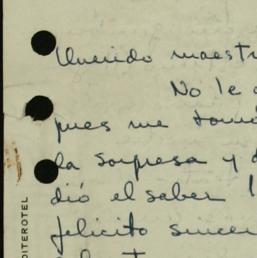 Querido maestr
No le
pues me tomó
la sorpresa y d
dió el saber
felicito sincer
DITEROTEL